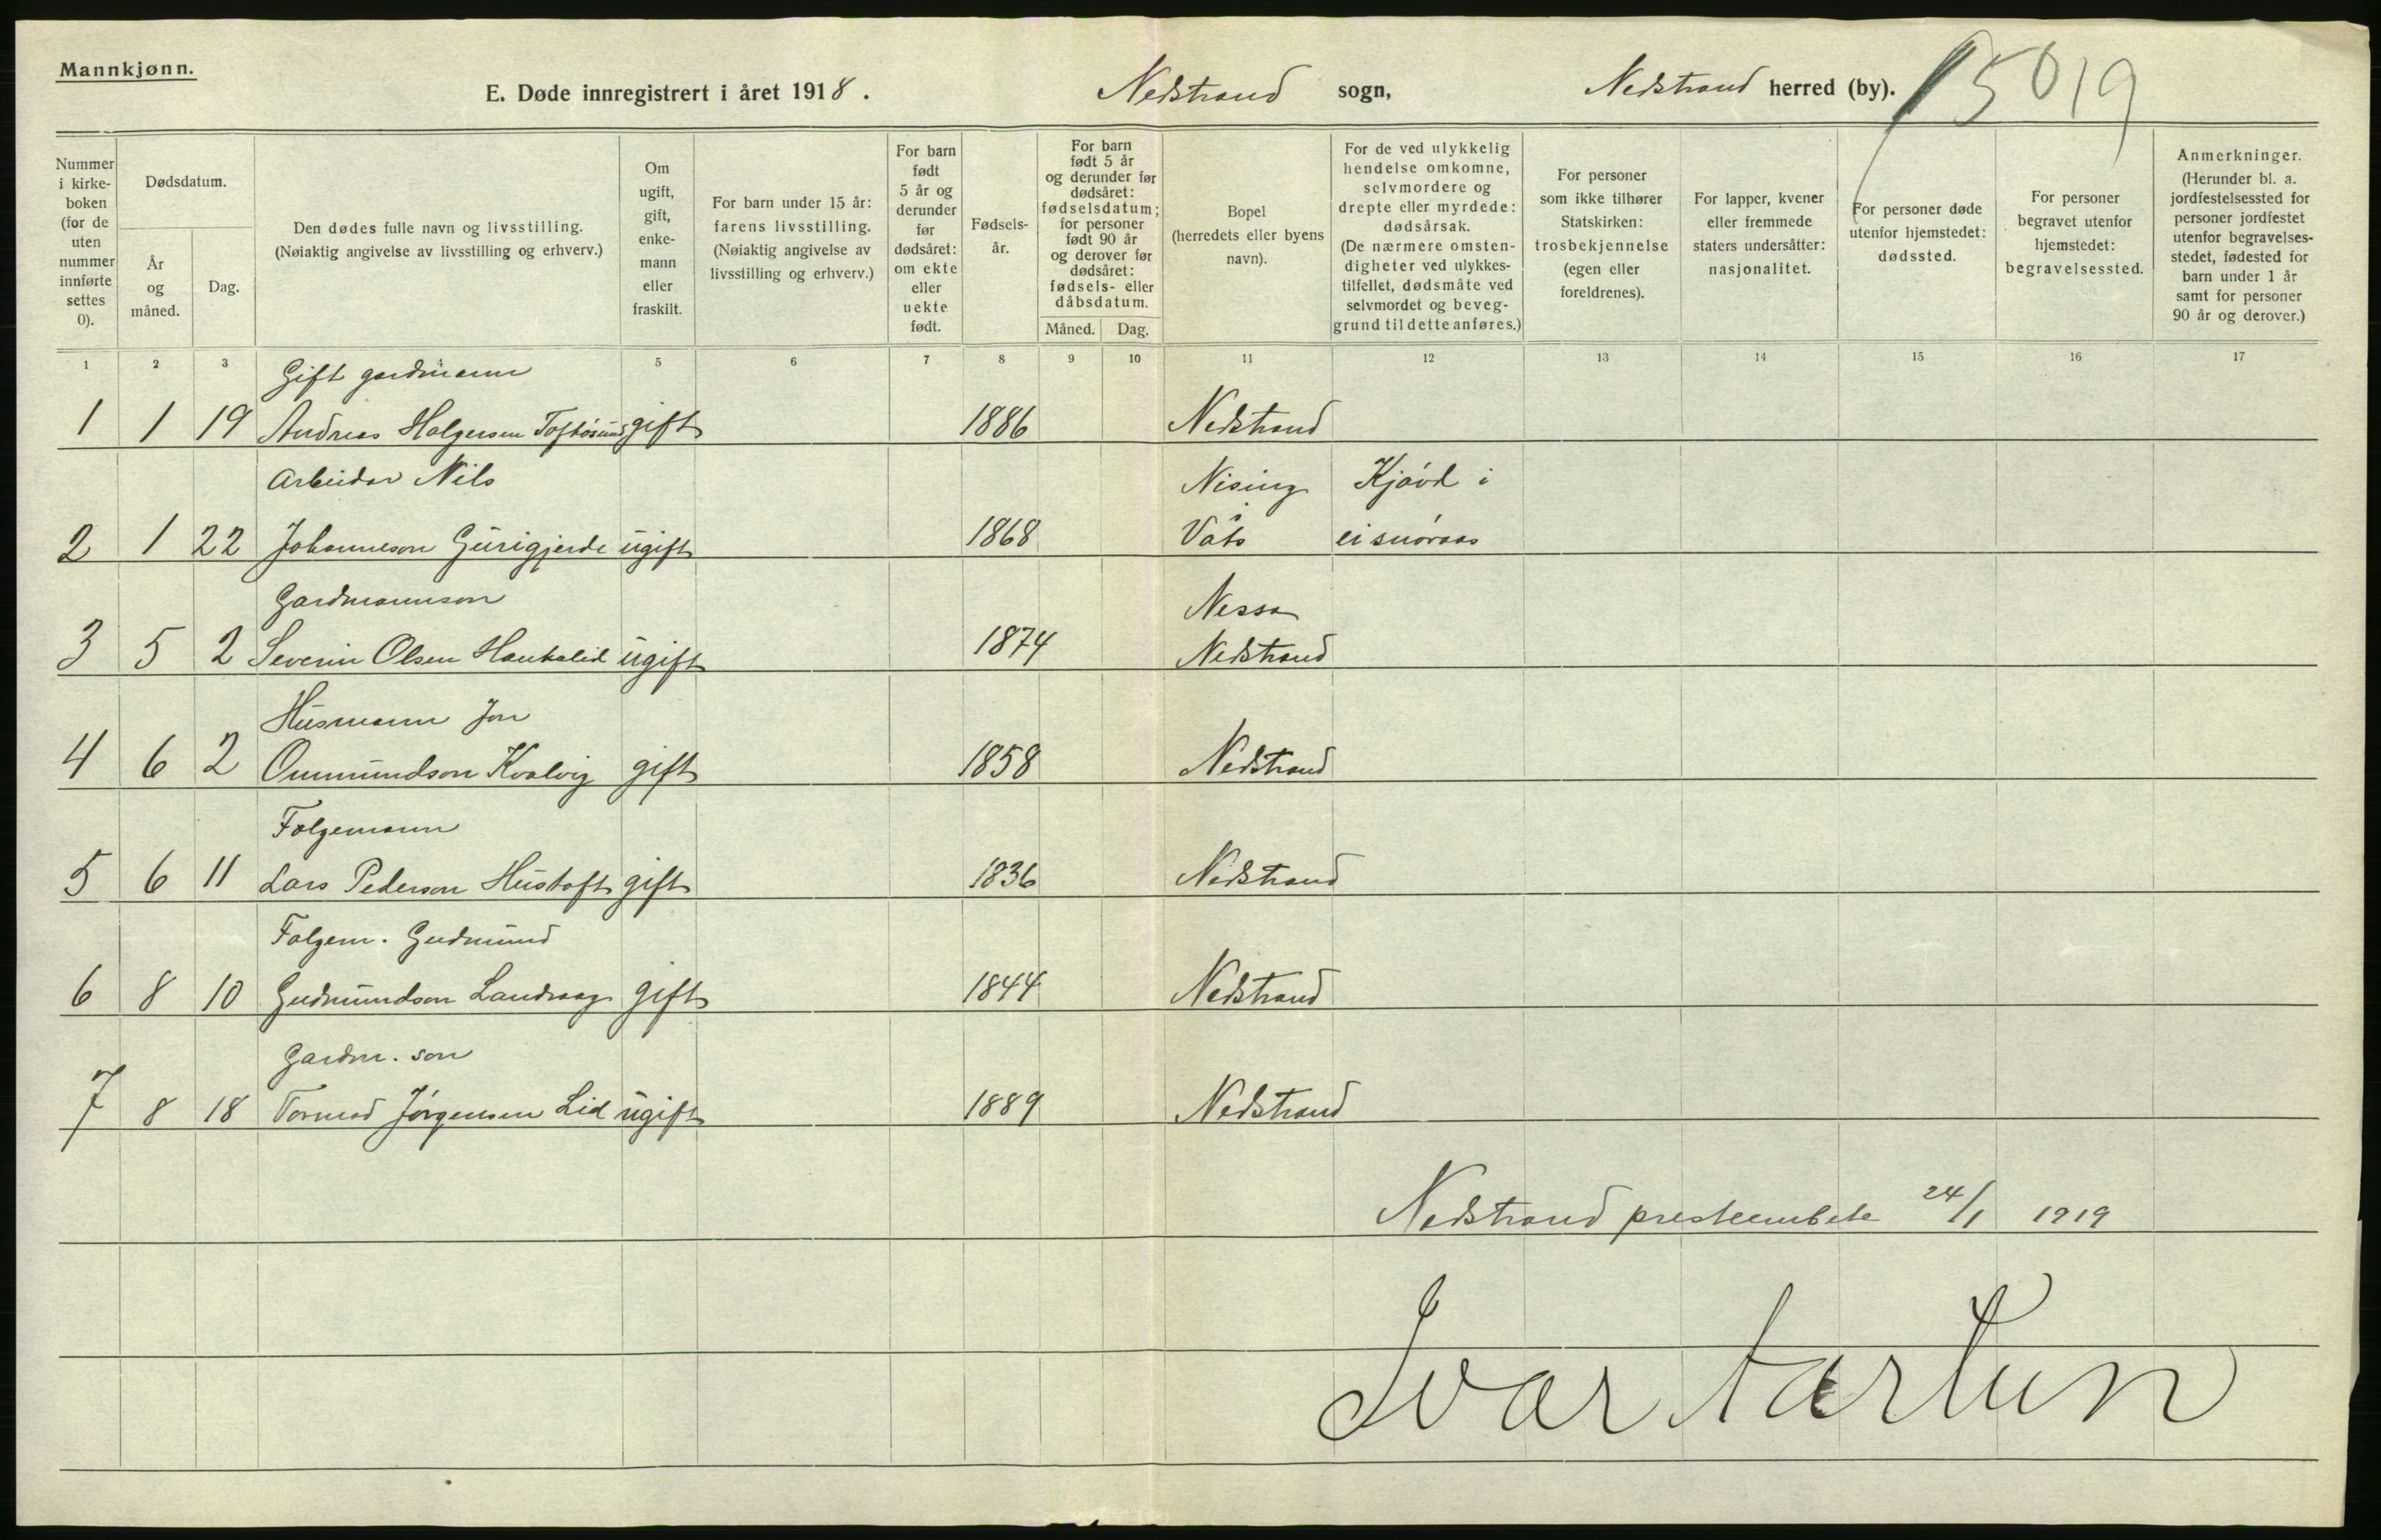 Mannkjønn.
E. Døde innregistrert i året 1918. Nedstrand sogn, Nedstrand herred (by). 15019
Nummer i kirke-boken (for de uten nummer innførte settes 0).
Dødsdatum.
År og måned.
Dag.
Den dødes fulle navn og livsstilling.
(Nøiaktig angivelse av livsstilling og erhverv.)
Om ugift, gift, enke-mann eller fraskilt.
For barn under 15 år: farens livsstilling.
(Nøiaktig angivelse av livsstilling og erhverv.)
For barn født 5 år og derunder før dødsåret: om ekte eller uekte født.
Fødsels-år.
For barn født 5 år og derunder før dødsåret: fødselsdatum; for personer født 90 år og derover før dødsåret: fødsels- eller dåbsdatum.
Måned. Dag.
Bopel (herredets eller byens navn).
For de ved ulykkelig hendelse omkomne, selvmordere og drepte eller myrdede: dødsårsak.
(De nærmere omsten-digheter ved ulykkes-tilfellet, dødsmåte ved selvmordet og beveg-grund til dette anføres.)
For personer som ikke tilhører Statskirken: trosbekjennelse (egen eller foreldrenes).
For lapper, kvener eller fremmede staters undersåtter: nasjonalitet.
For personer døde utenfor hjemstedet: dødssted.
For personer begravet utenfor hjemstedet: begravelsessted.
Anmerkninger.
(Herunder bl. a. jordfestelsessted for personer jordfestet utenfor begravelses-stedet, fødested for barn under 1 år samt for personer 90 år og derover.)
1 2 3 5 6 7 8 9 10 11 12 13 14 15 16 17
Gift gardmann
1 1 19 Andreas Holgersen gift 1886 Nedstrand
Arbeidar Nils Nising Kjøvd i
2 1 22 Johanneson Gurigjerde ugift 1868 Våts ei snøraas
Gardmannson Nessa
3 5 2 Severin Olsen Haukalid ugift 1874 Nedstrand
Husmann Jon
4 6 2 Ommundson Kvalvig gift 1858 Nedstrand
Folgemann
5 6 11 Lars Pederson Hustoft gift 1836 Nedstrand
Folgem. Gudmund
6 8 10 Gudmundson Landraag gift 1844 Nedstrand
Gardm. son
7 8 18 Tormod Jørgensen Lid ugift 1889 Nedstrand
Nedstrand presteembete 24/1 1919
Ivar Aartun